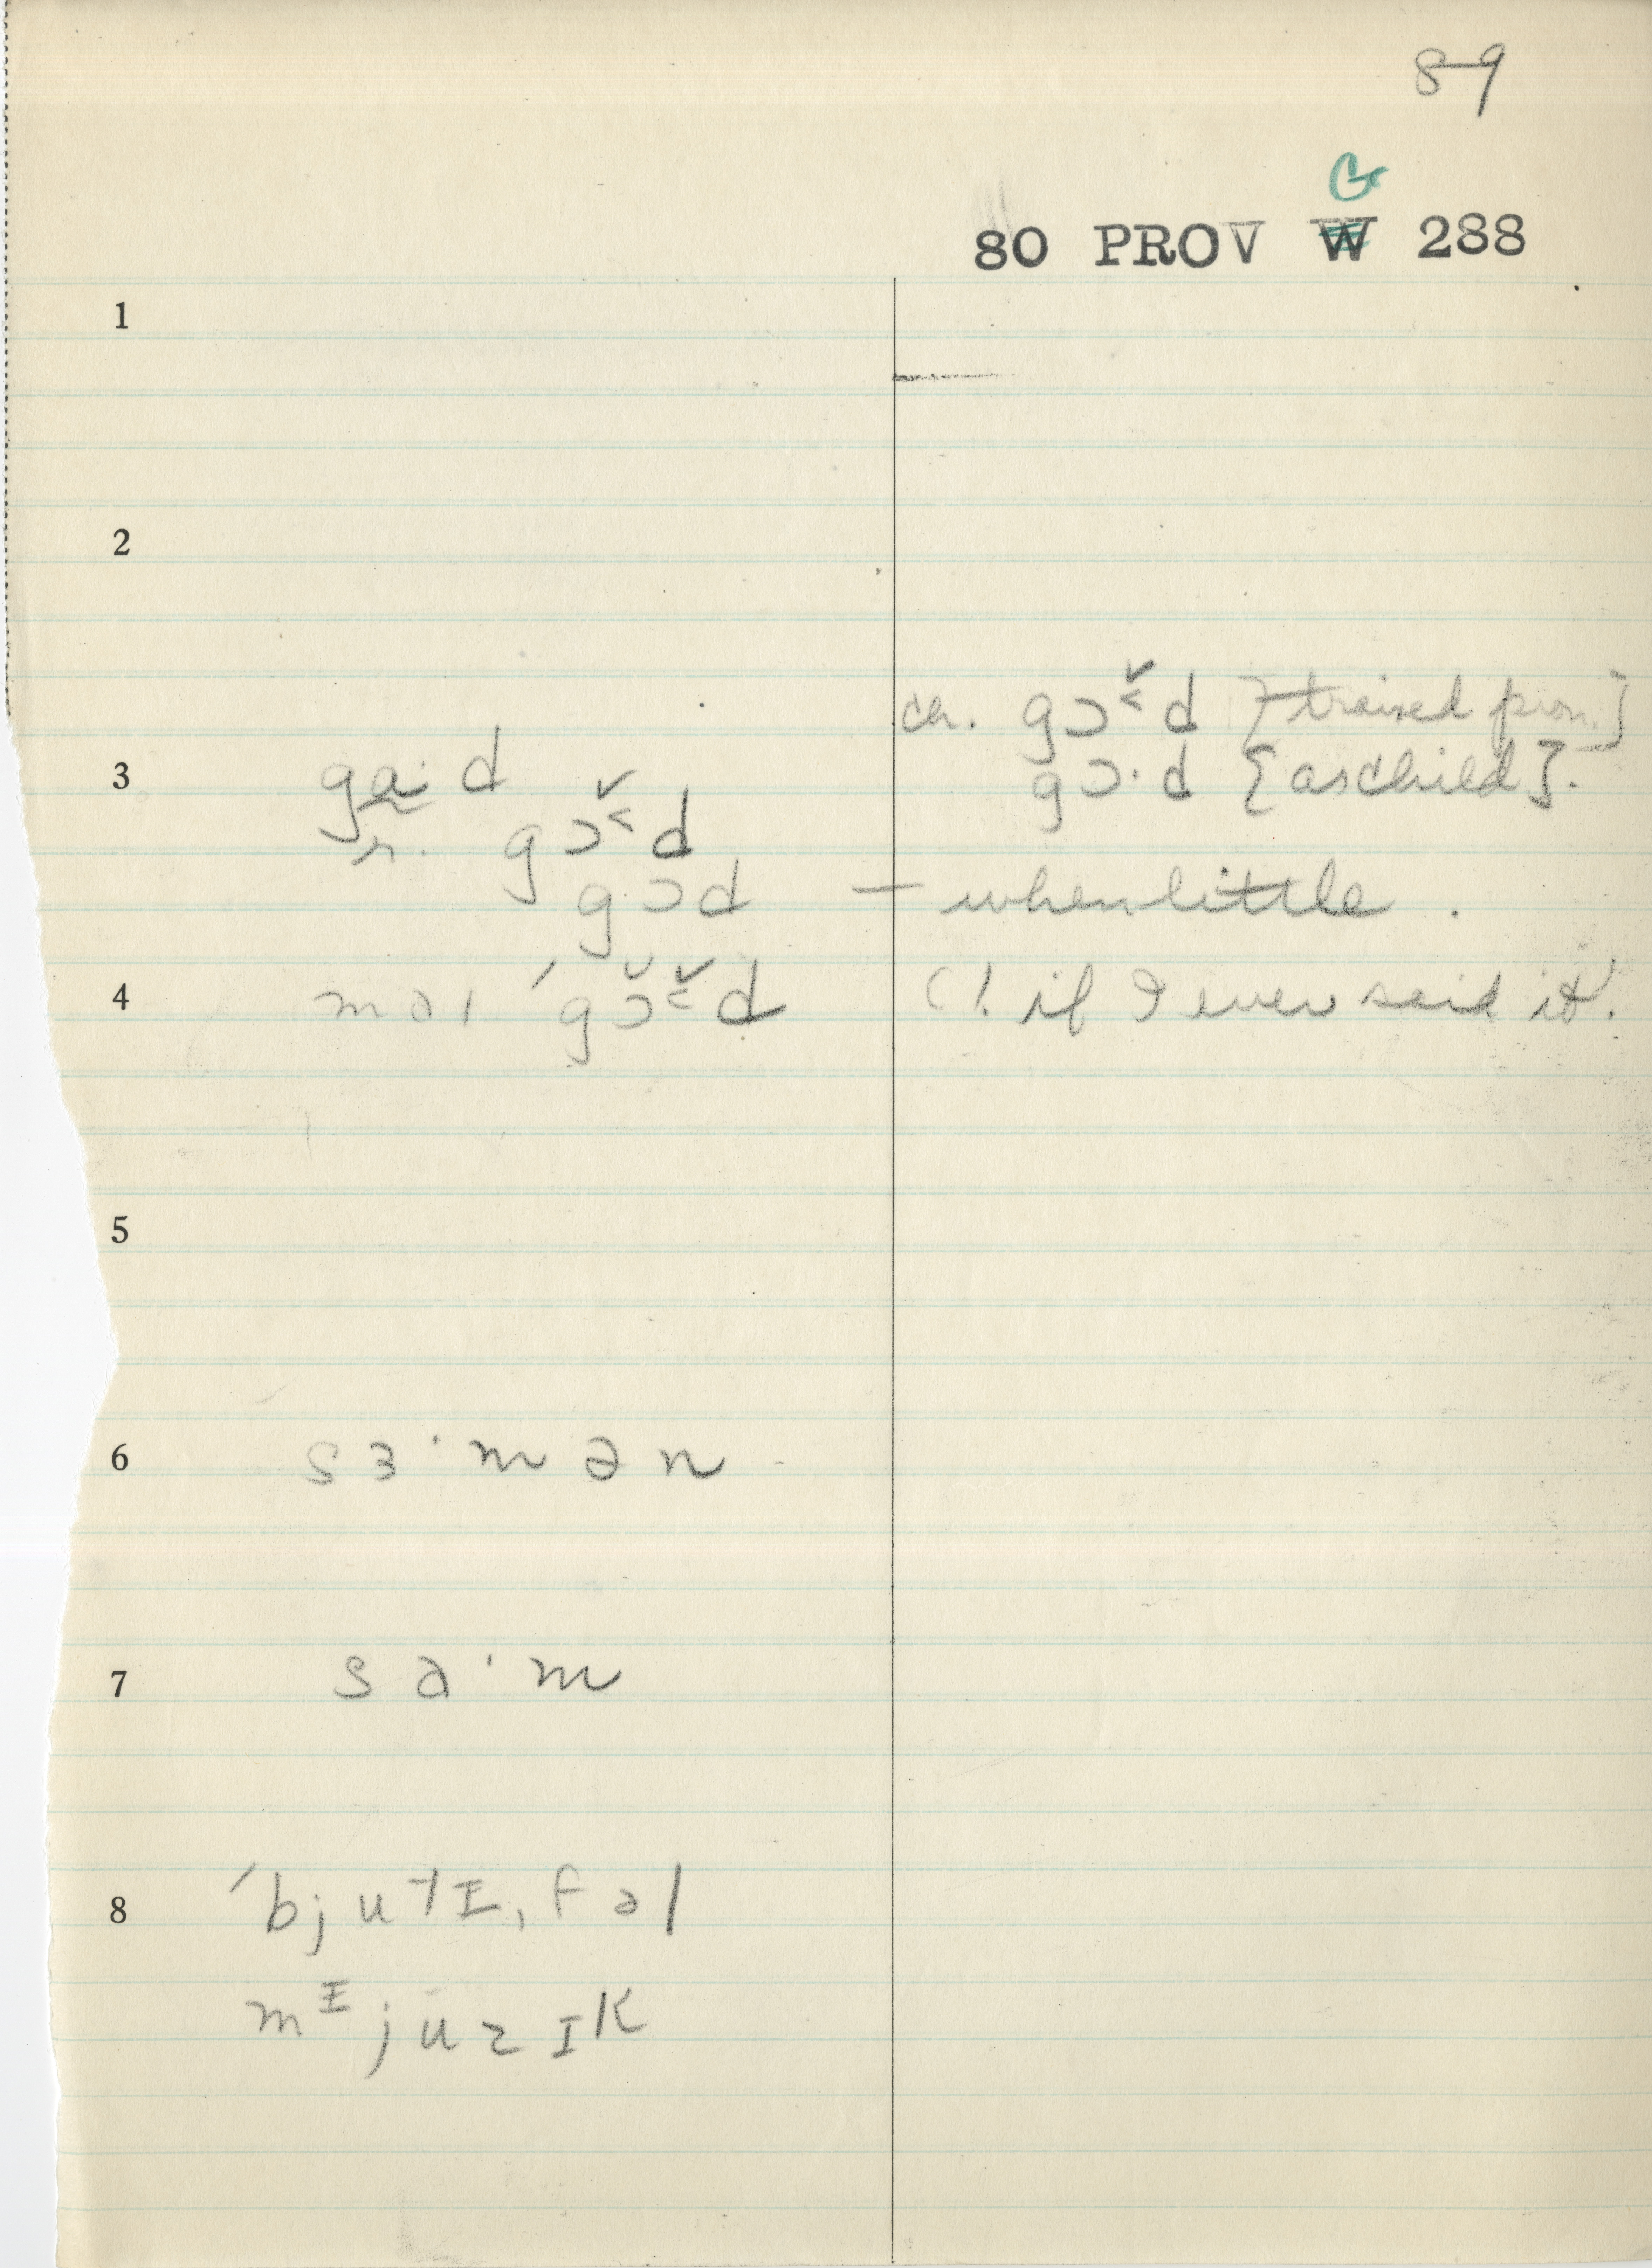 89
G
80 PROV W 288
1
2
cr. gɔˇ˂d [trained pron.]
3 ga·d gɔ·d [as child].
r. gɔˇ˂d
gɔd — when little.
4 maɪ 'gɔ̆ˇ˂d (! if I ever said it.
5
6 sɜ·mən
7 sɑ·m
8 'bjutɪ,fəl
mɪjuzɪk